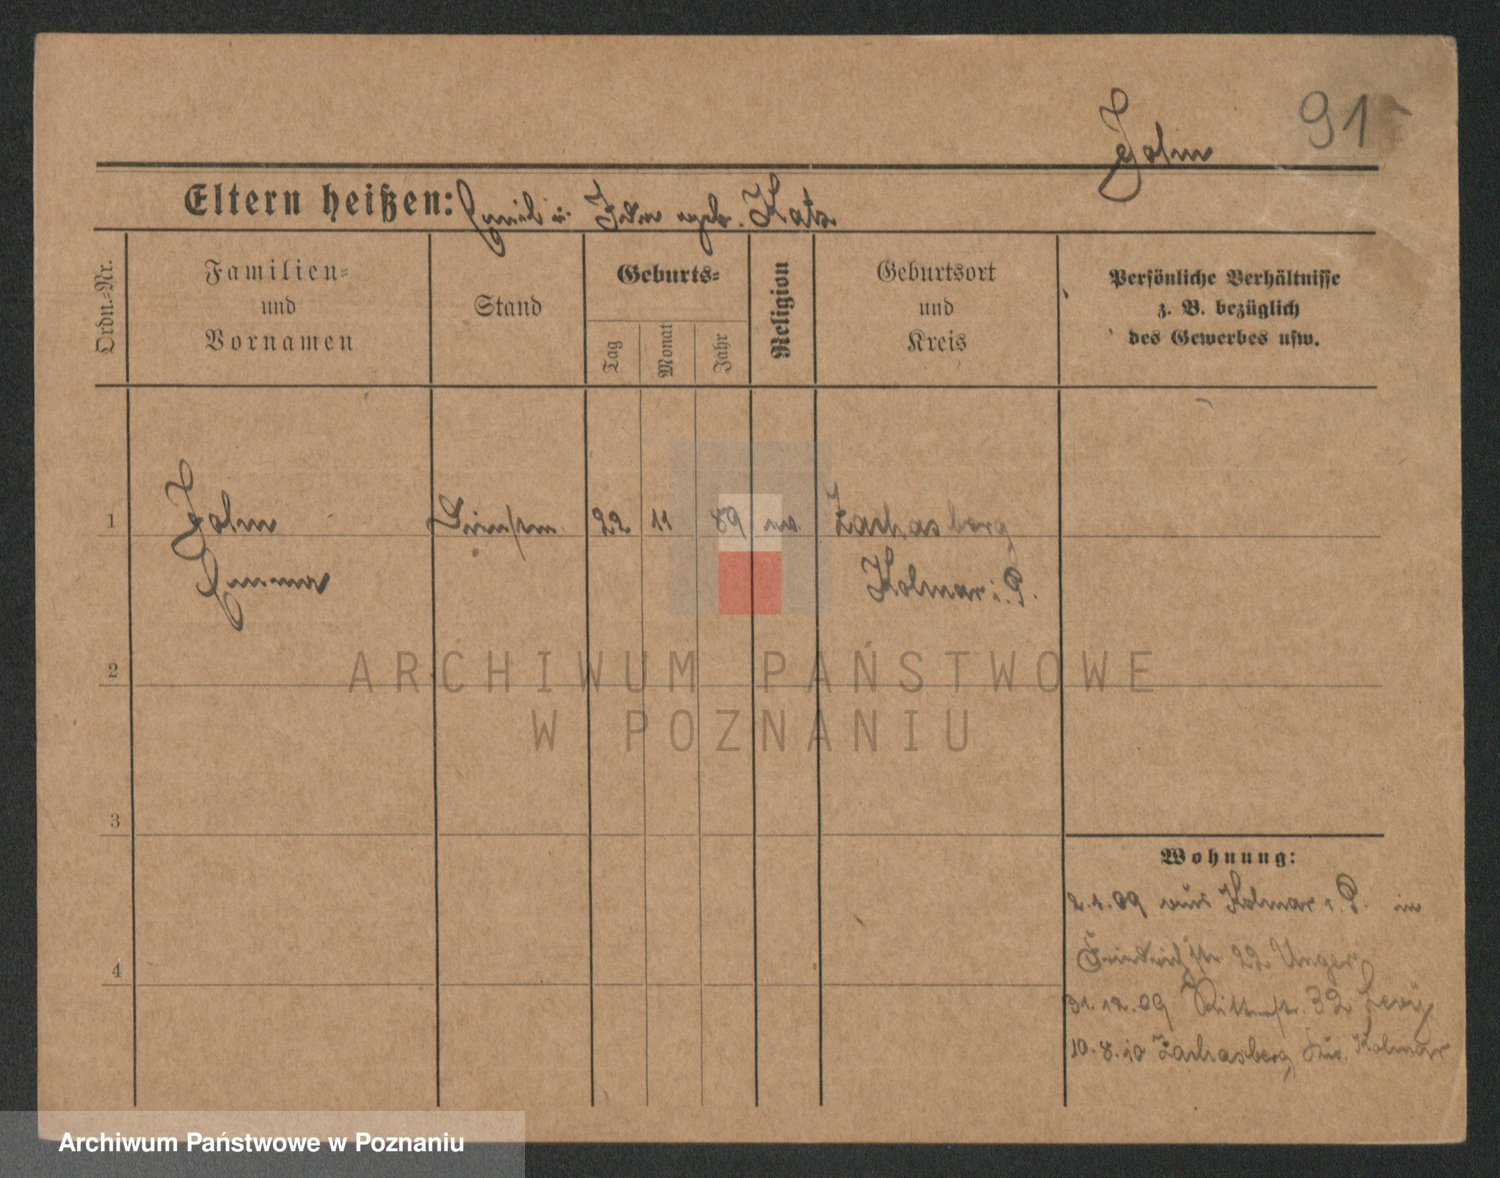 91
Jahn
Eltern heißen: Emil u. Ida geb. Katz
Ordn.-Nr.
Familien-
und
Vornamen
Stand
Geburts-
Tag
Monat
Jahr
Religion
Geburtsort
und
Kreis
Persönliche Verhältnisse
z. B. bezüglich
des Gewerbes usw.
1
22 11 89 ev Zachasberg
Emma
Kolmar i. P.
2
3
4
Wohnung:
2.1.09 aus Kolmar i. P. in
Friedrichstr. 22 Unger
31.12.09 Ritterstr. 32 Levy
10.8.10 Zachasberg Kr. Kolmar
ARCHIWUM PAŃSTWOWE
W POZNANIU
Archiwum Państwowe w Poznaniu